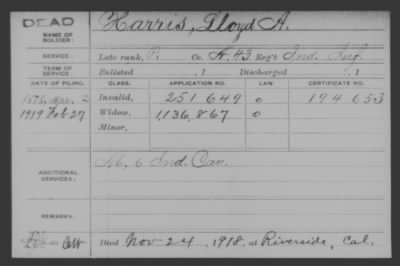 DEAD
NAME OF SOLDIER:
Harris, Lloyd A.
SERVICE:
Late rank, P. Co. K, 43 Reg't Ind. Inf.
TERM OF SERVICE:
Enlisted , 1 Discharged , 1
DATE OF FILING. CLASS. APPLICATION NO. LAW. CERTIFICATE NO.
Invalid, 251 649 0 194 653
1919 Feb 27 Widow, 1,136,867 0
Minor,
ADDITIONAL SERVICES:
M, 6 Ind. Cav.
REMARKS:
Died Nov 24, 1918, at Riverside, Cal.